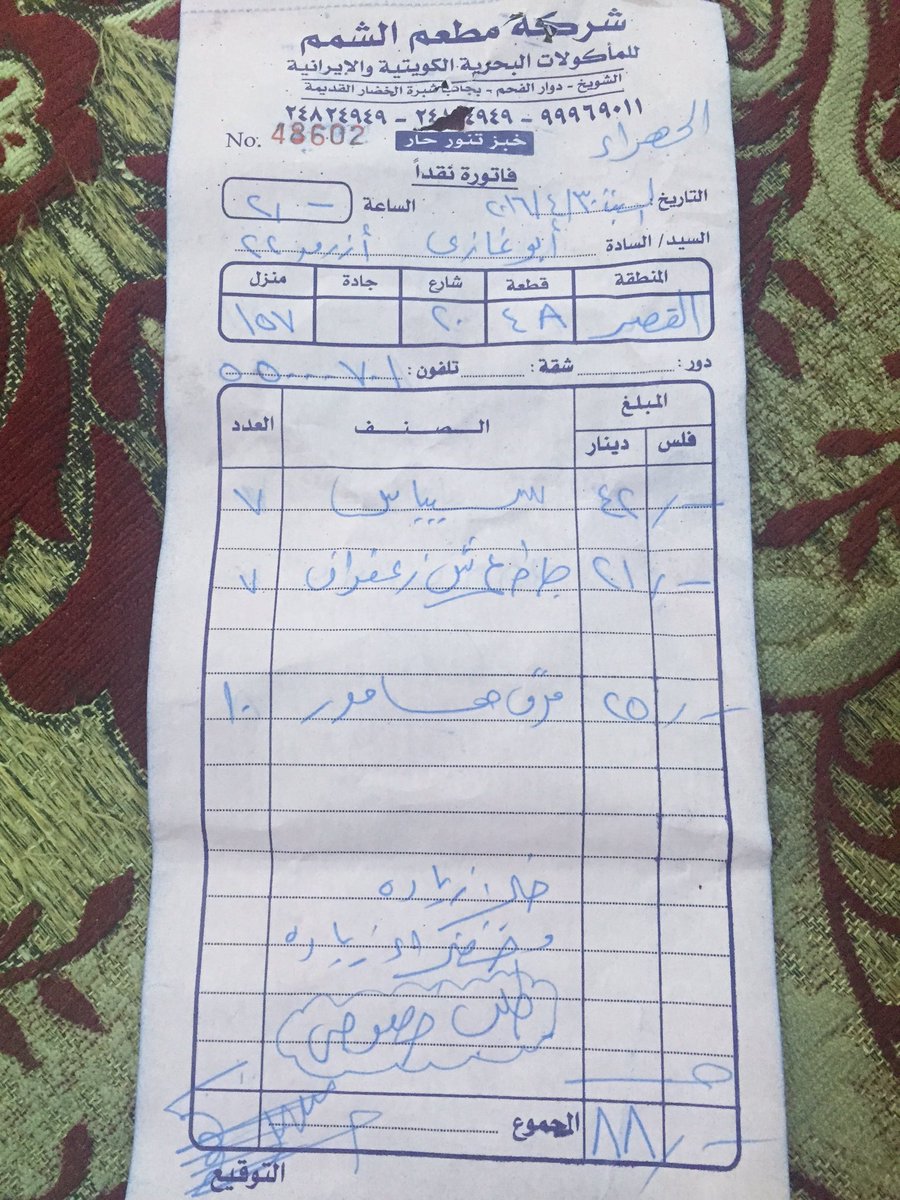 شركة مطعم الشمم
للمأكولات البحرية الكويتية والايرانية
الشويخ - دوار الفحم - بجانب شبرة الخضار القديمة
٩٩٩٦٩٠١١ - ٩٤٩ - ٢٤٨٢٤٩٤٩
الجهراء
No. 48602
خبز تنور حار
فاتورة نقداً
التاريخ السبت ٢٠١٦/٤/٣٠ الساعة ٢/-
السيد/ السادة أبو غازي
المنطقة قطعة شارع جادة منزل
القصر ٤A ٢٠ ١٥٧
دور: شقة: تلفون: ٥٥٠٠٠٧٠١
المبلغ الـصـنـف العدد
فلس دينار
-/ ٤٢ ٧
-/ ٢١ زعفران ٧
-/ ٢٥ مرق هامور ١٠
زياده
زياده
طلب خصوصي
المجموع ٨٨ /-
التوقيع